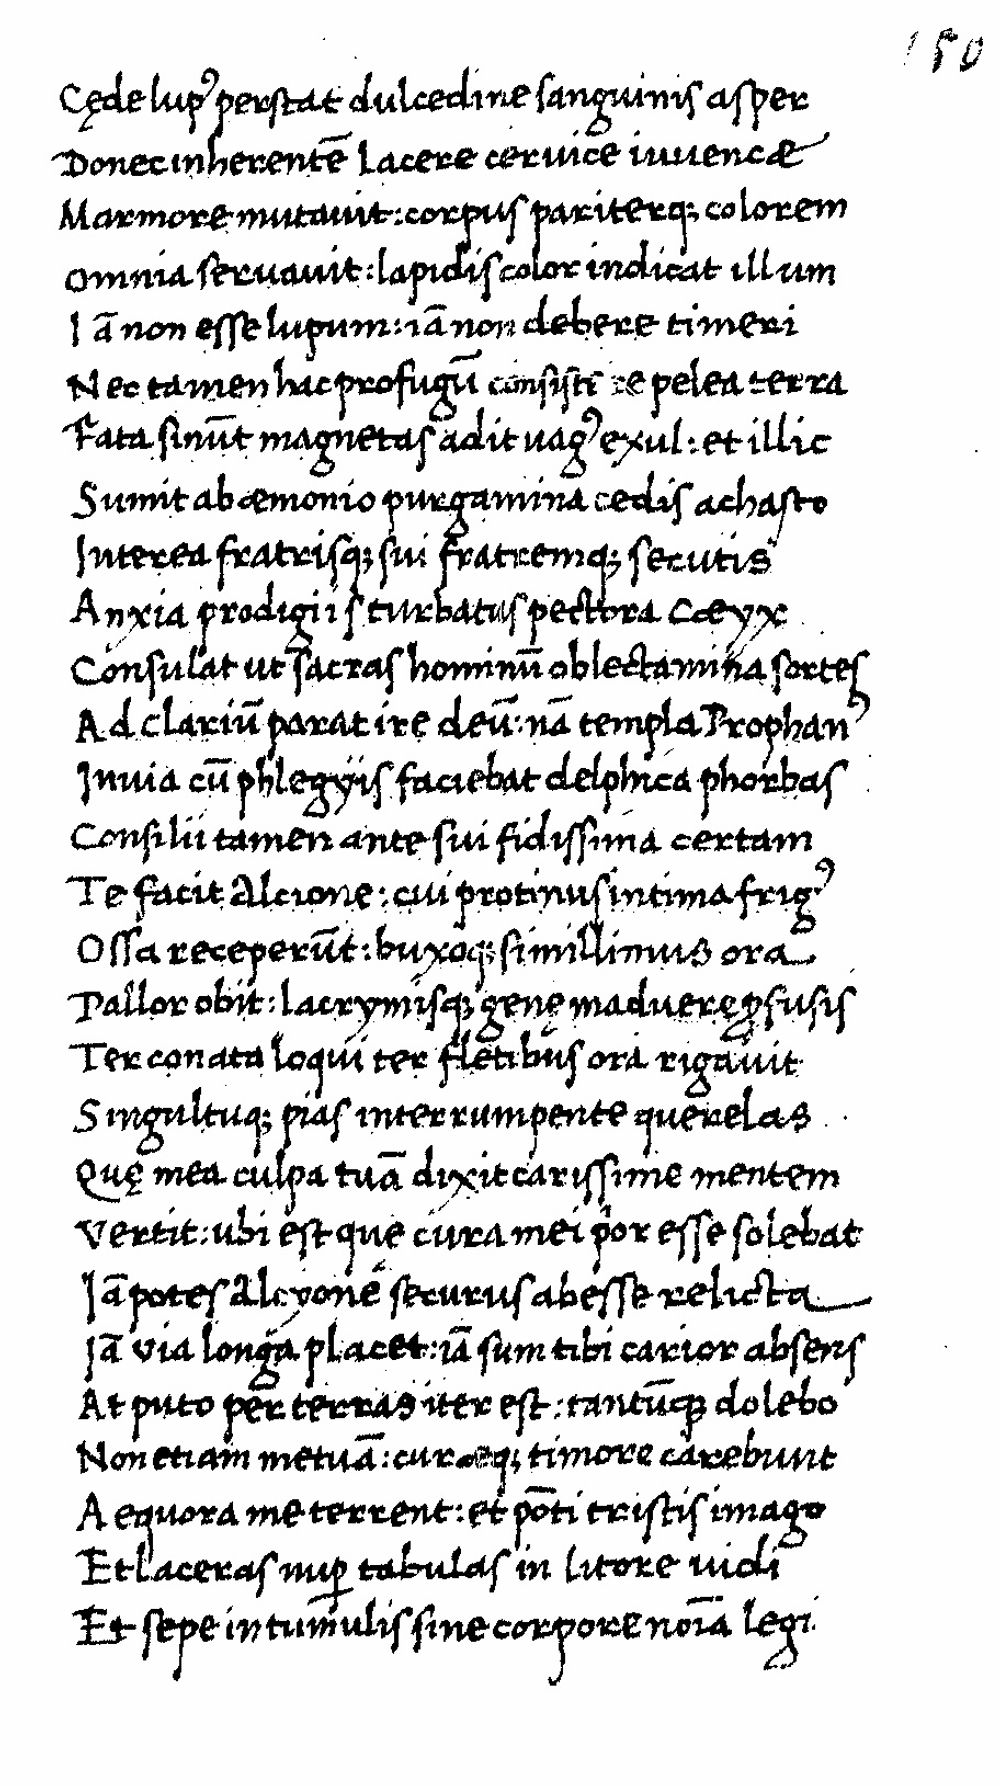 150
Cęde lupꝰ perstat dulcedine sanguinis asper
Donec inherentē lacere ceruice iuuencæ
Marmore mutauit: corpus pariterq; colorem
Omnia seruauit: lapidis color indicat illum
Iā non esse lupum: iā non debere timeri
Nec tamen hac profugū consistere pelea terra
Fata sinūt magnetas adit uagꝰ exul: et illic
Sumit ab æmonio purgamina cedis achasto
Interea fratrisq; sui fratremq; secutis
Anxia prodigiis turbatus pectora Cæyx
Consulat ut sacras hominū oblectamina sortes
Ad clariū parat ire deū: nā templa Prophanꝰ
Inuia cū phlegyis faciebat delphica phorbas
Consilii tamen ante sui fidissima certam
Te facit Alcione: cui protinus intima frigꝰ
Ossa receperūt: buxoq; simillimus ora
Pallor obit: lacrymisq; genę maduere ꝓfusis
Ter conata loqui ter fletibus ora rigauit
Singultuq; pias interrumpente querelas
Quę mea culpa tuā dixit carissime mentem
Vertit: ubi est quę cura mei p̄or esse solebat
Iā potes Alcyone securus abesse relicta
Iā via longa placet: iā sum tibi carior absens
At puto per terras iter est: tantūqꝫ dolebo
Non etiam metuā: curæq; timore carebunt
Aequora me terrent: et pōti tristis imago
Et laceras nuꝑ tabulas in litore uidi
Et sepe in tumulis sine corpore noīa legi